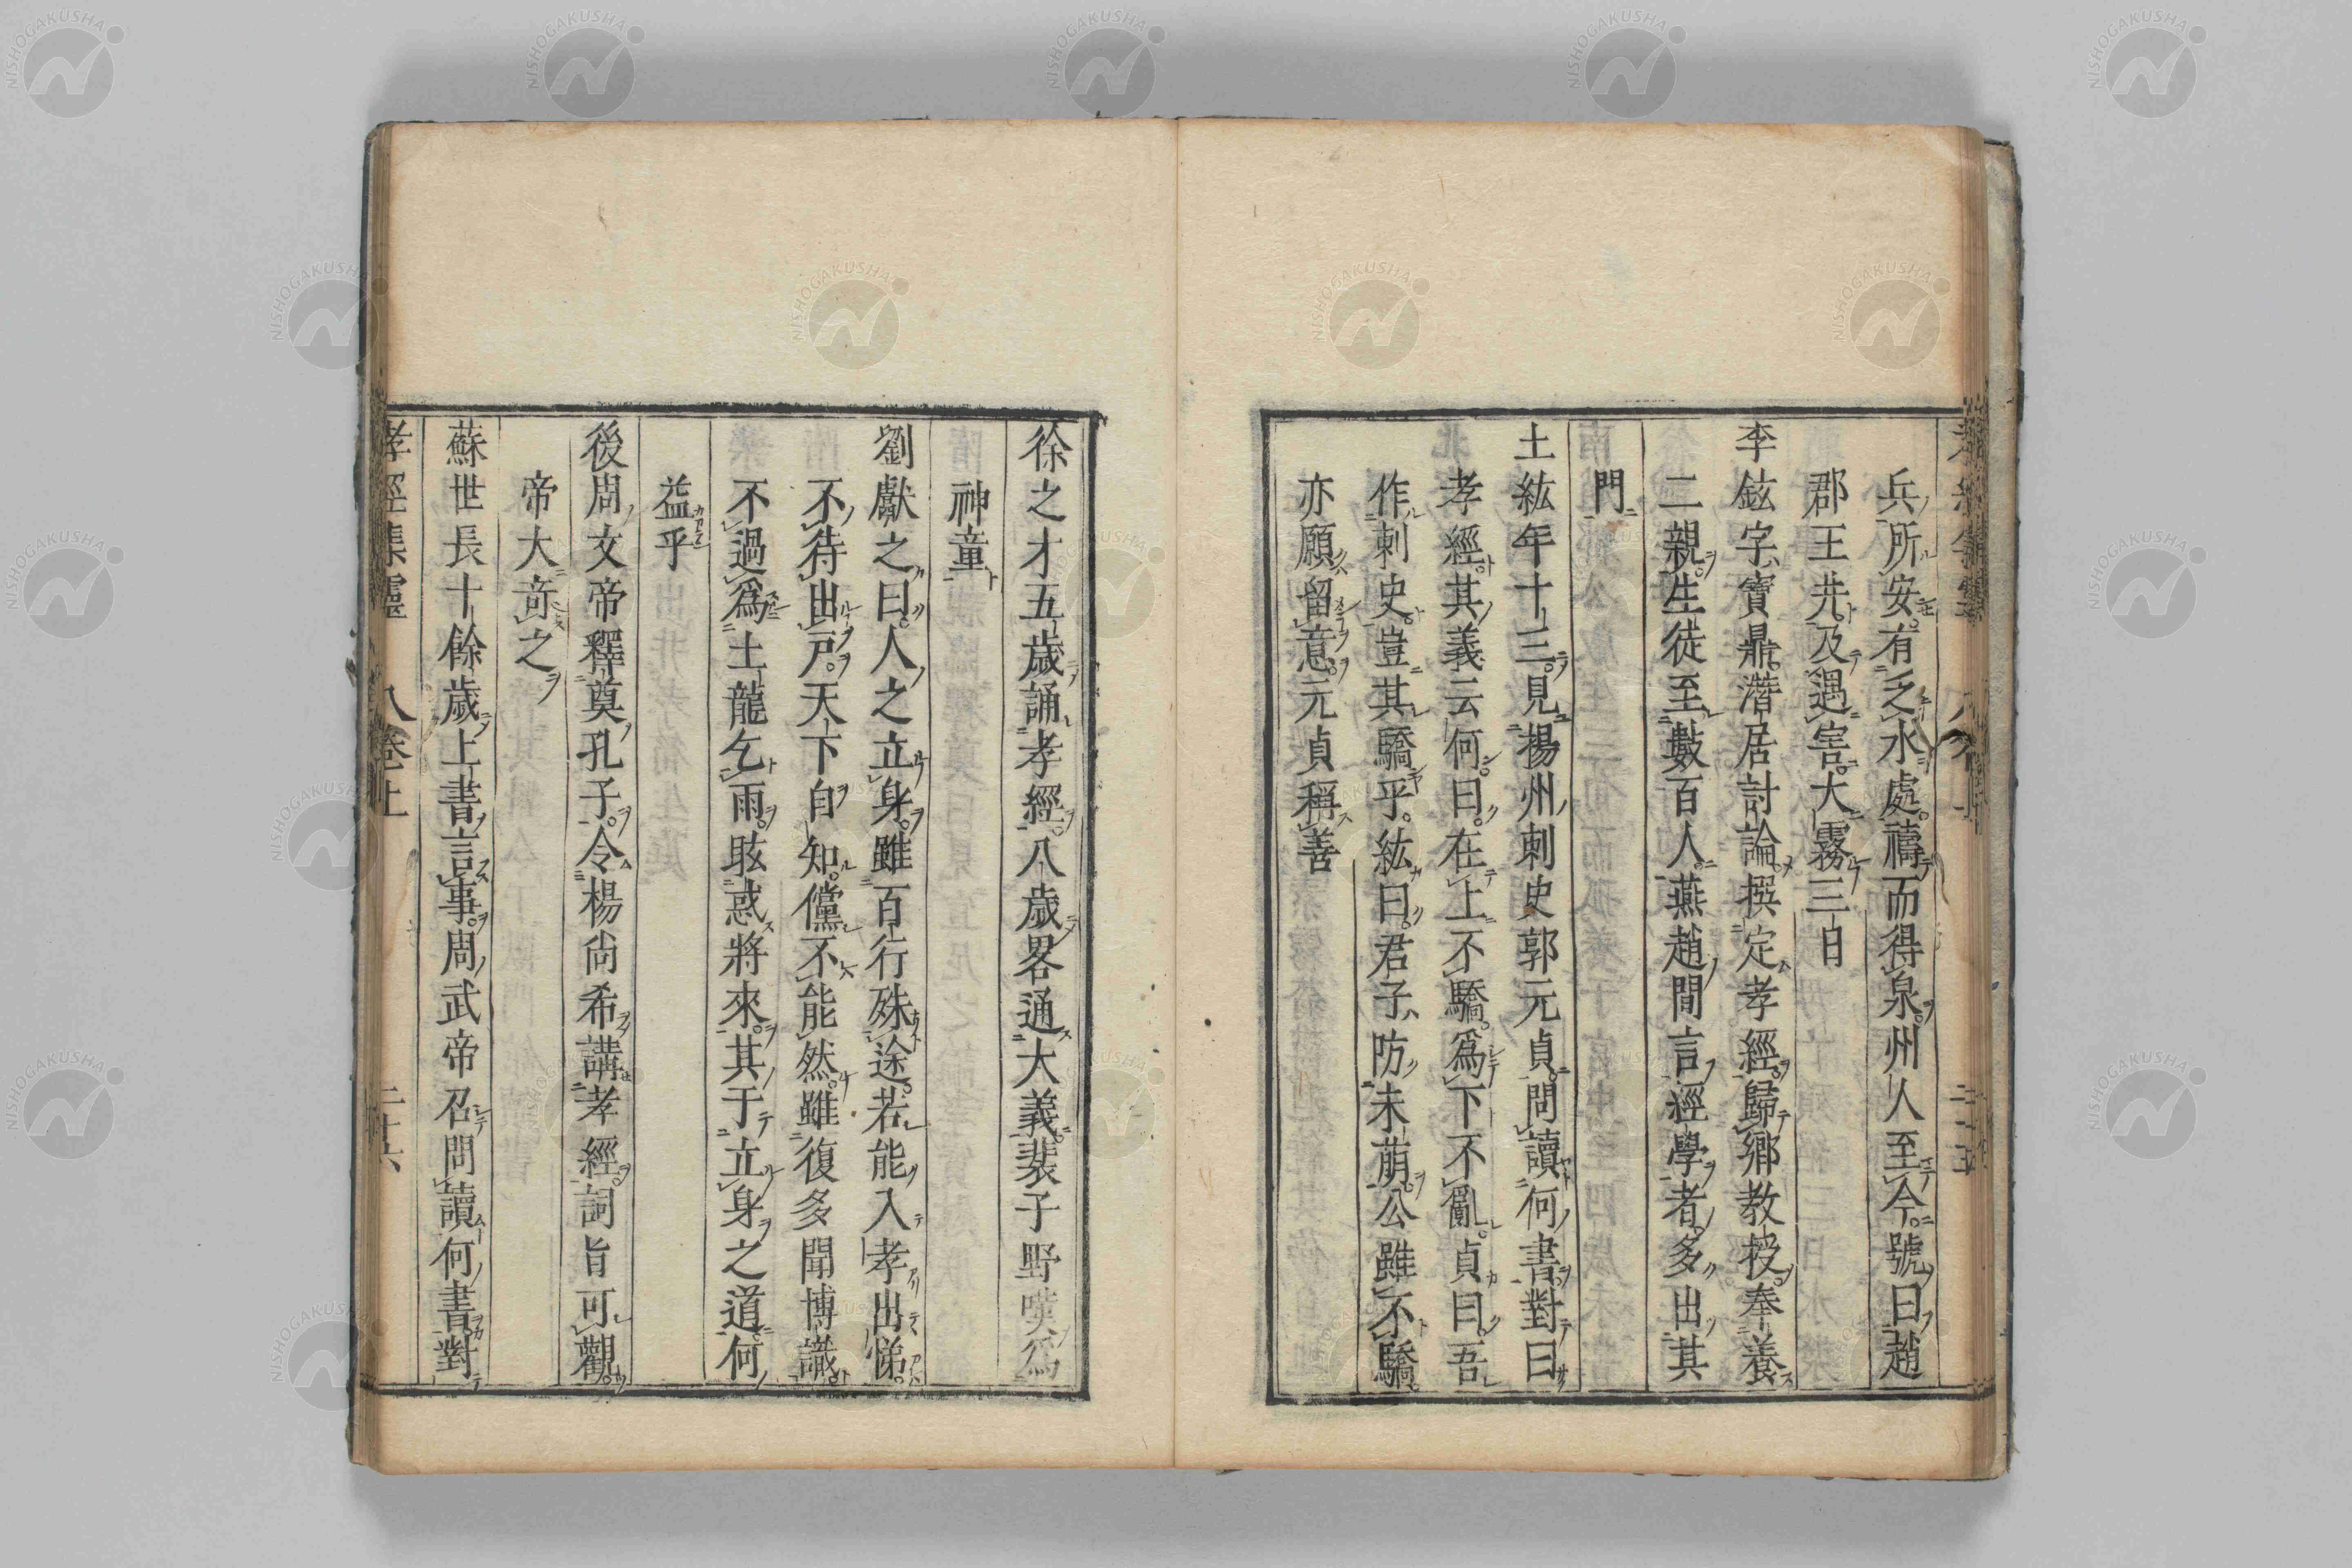 兵所安有乏水處禱而得泉州人至今號曰趙
郡王井及遇害大霧三日
李鉉字寶鼎潛居討論撰定孝經歸鄉教授奉養
二親生徒至數百人燕趙間言經學者多出其
門
土紘年十三見揚州刺史郭元貞問讀何書對曰
孝經其義云何曰在上不驕爲下不亂貞曰吾
作刺史豈其驕乎紘曰君子防未萠公雖不驕
亦願留意元貞稱善
徐之才五歲誦孝經八歲畧通大義裴子野嘆爲
神童
劉獻之曰人之立身雖百行殊途若能入孝出悌
不待出戸天下自知儻不能然雖復多聞博識
不過爲土龍乞雨眩惑將來其于立身之道何
益乎
後周文帝釋奠孔子令楊尙希講孝經詞旨可觀
帝大竒之
蘇世長十餘歲上書言事周武帝召問讀何書對
孝經集靈 八卷上 二十六
NISHOGAKUSHA